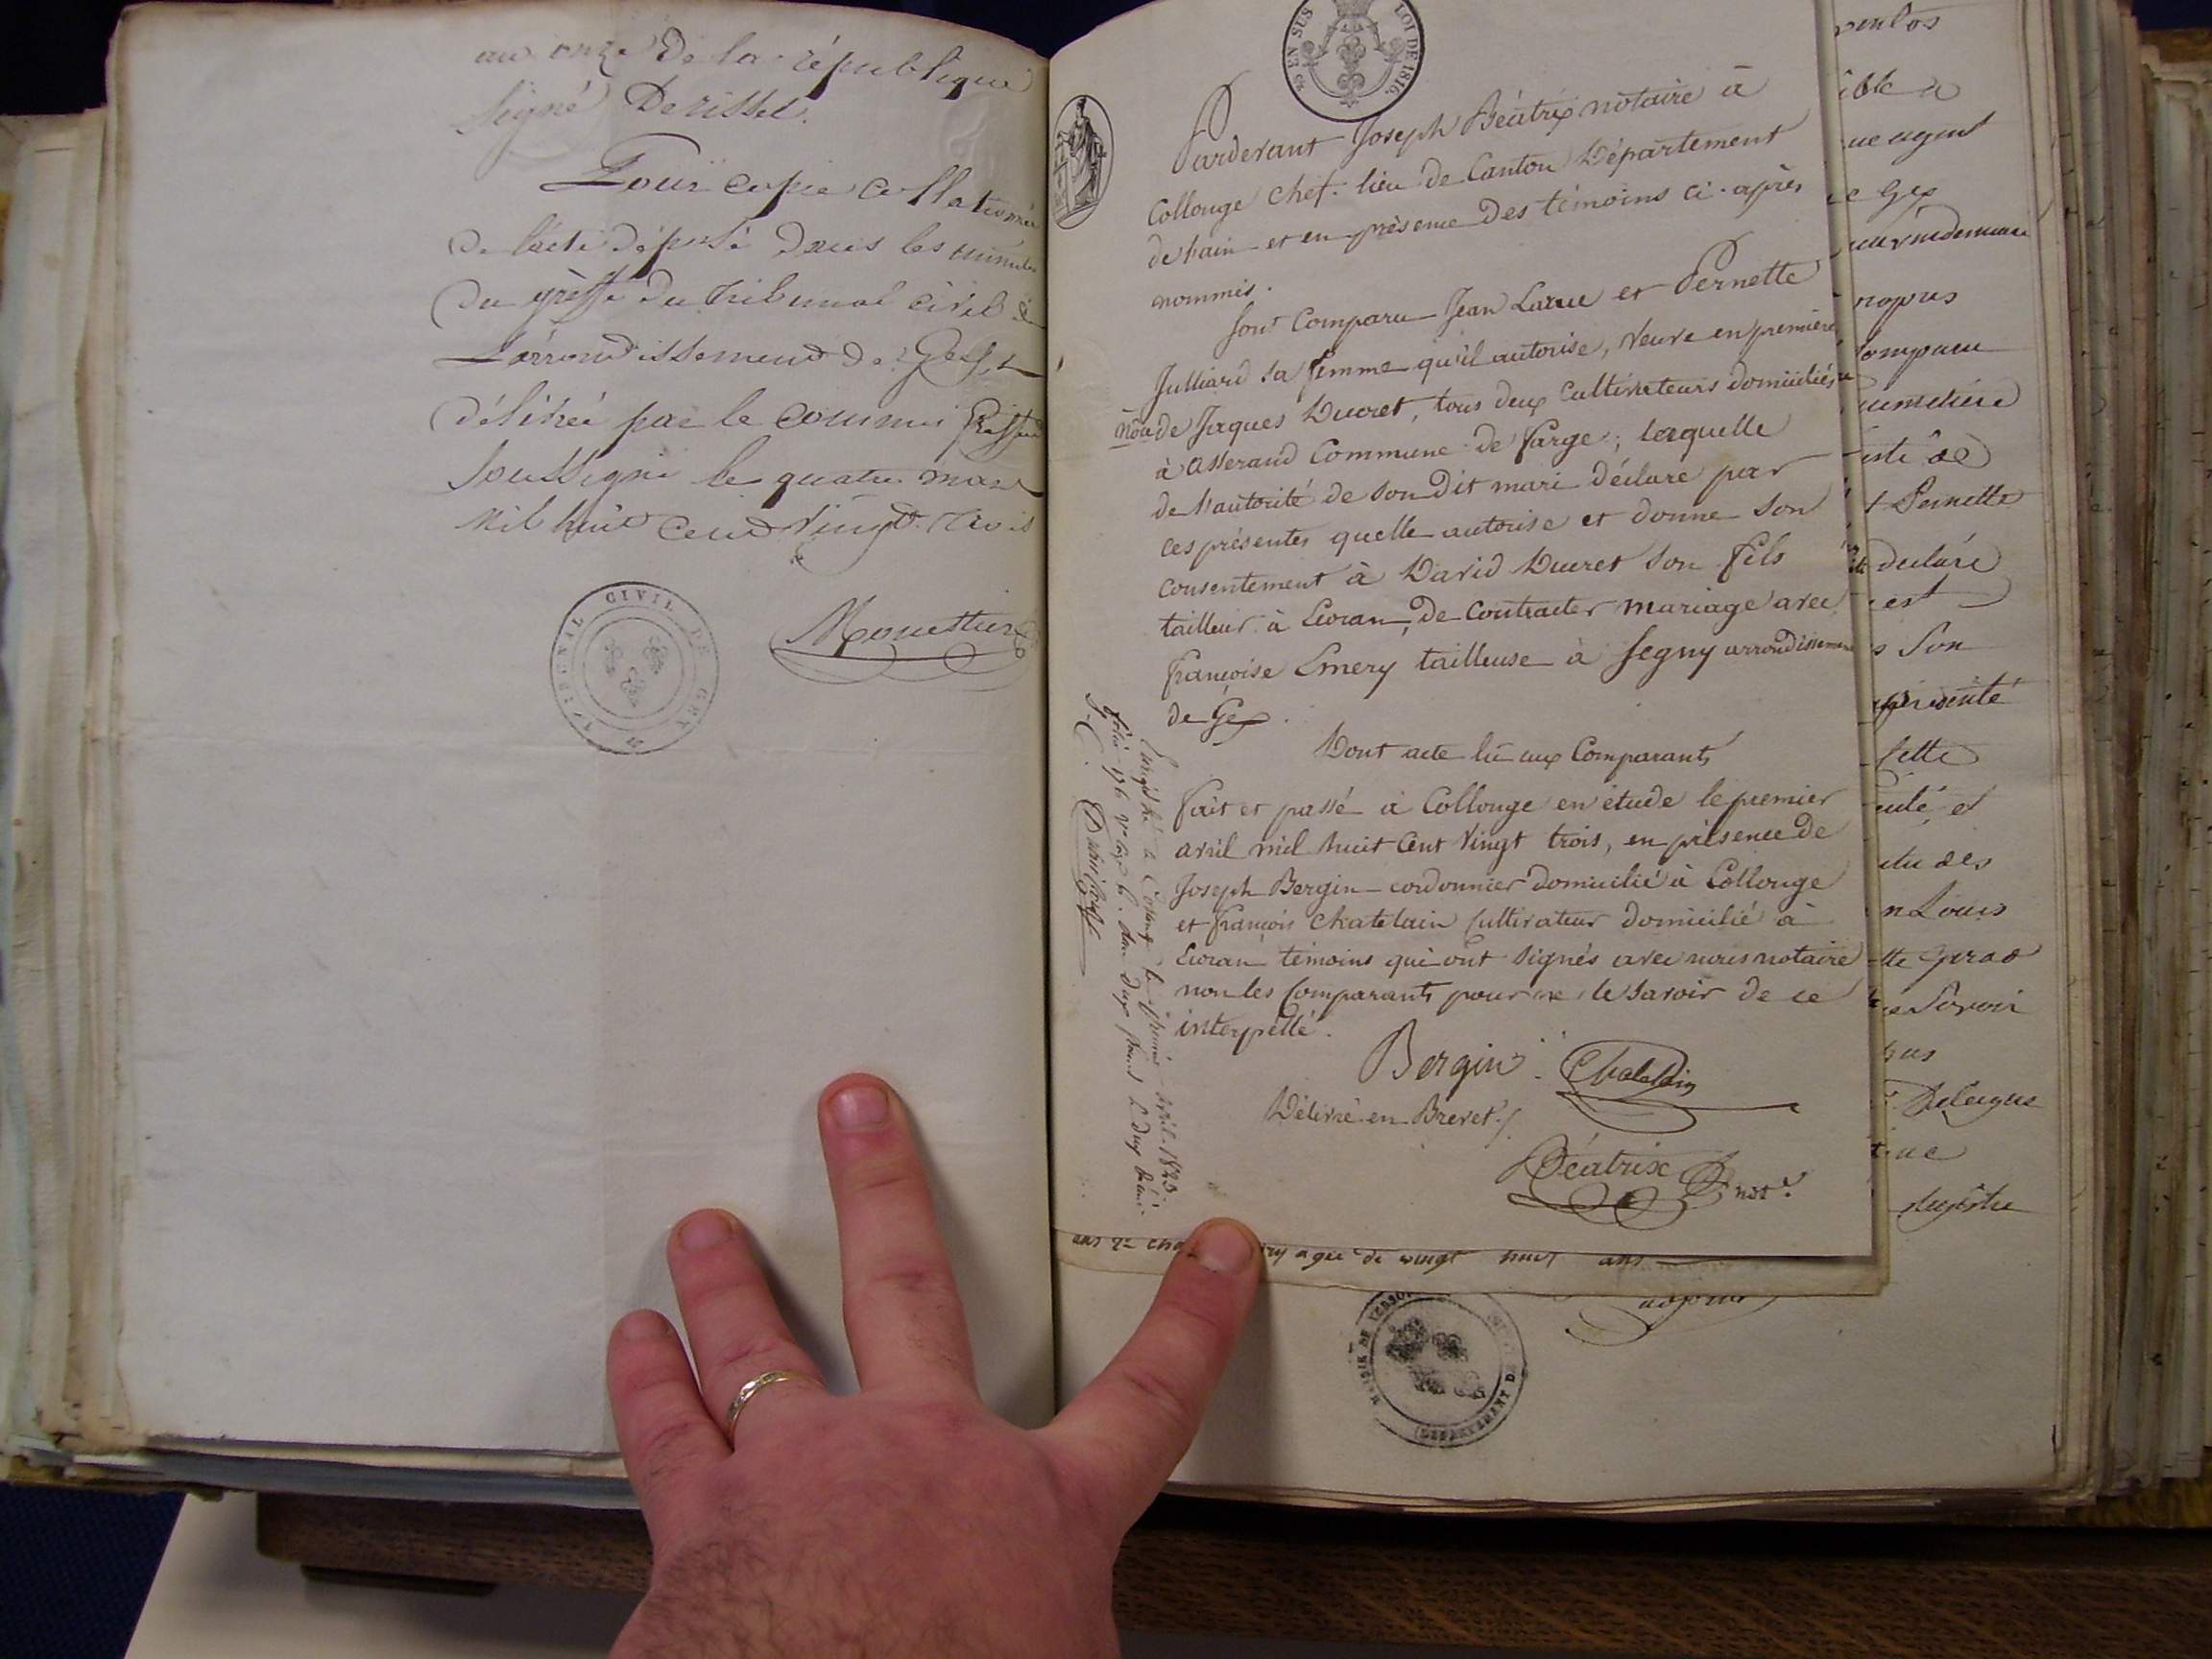 an onze de la république
signé Derisset.
Pour copie collationnée
de l'acte déposé dans les minutes
du greffe du tribunal civil de
L'arrondissement de Gex, et
délivrée par le commis Greffier
soussigné le quatre mars
mil huit cent vingt trois
TRIBUNAL CIVIL DE GEX
EN SUS LOI DE 1816.
Pardevant Joseph Béatrix notaire à
Collonge chef-lieu de Canton Département
de l'ain et en présence des témoins ci-après
nommés.
Sont Comparu Jean Larue et Pernette
Julliard sa femme qu'il autorise, veuve en première
nôce de Jaques Ducret, tous deux Cultivateurs domiciliés
à asserand Commune de farge; laquelle
de l'autorité de son dit mari déclare par
ces présentes quelle autorise et donne son
consentement à David Ducret son fils
tailleur à Ecoran, de contracter mariage avec
françoise Emery tailleuse à Segny arrondissement
de Gex.
Dont acte lu aux Comparants
fait et passé à Collonge en étude le premier
avril mil huit cent vingt trois, en présence de
Joseph Bergin cordonnier domicilié à Collonge
et françois Chatelain Cultivateur domicilié à
Ecoran témoins qui ont signés avec nous notaire
non les Comparants pour ne le savoir de ce
interpellé.
Bergin Chatelain
Délivré en Brevet
Béatrix not.
Enregistré à Collonge le premier avril 1823.
folio 176
agée de vingt huit ans
MAIRIE DE DEPARTEMENT DE
ventos
ible a
ue agent
e Gex
nopus
compaeu
t Pernette
declare
est
s son
n Louis